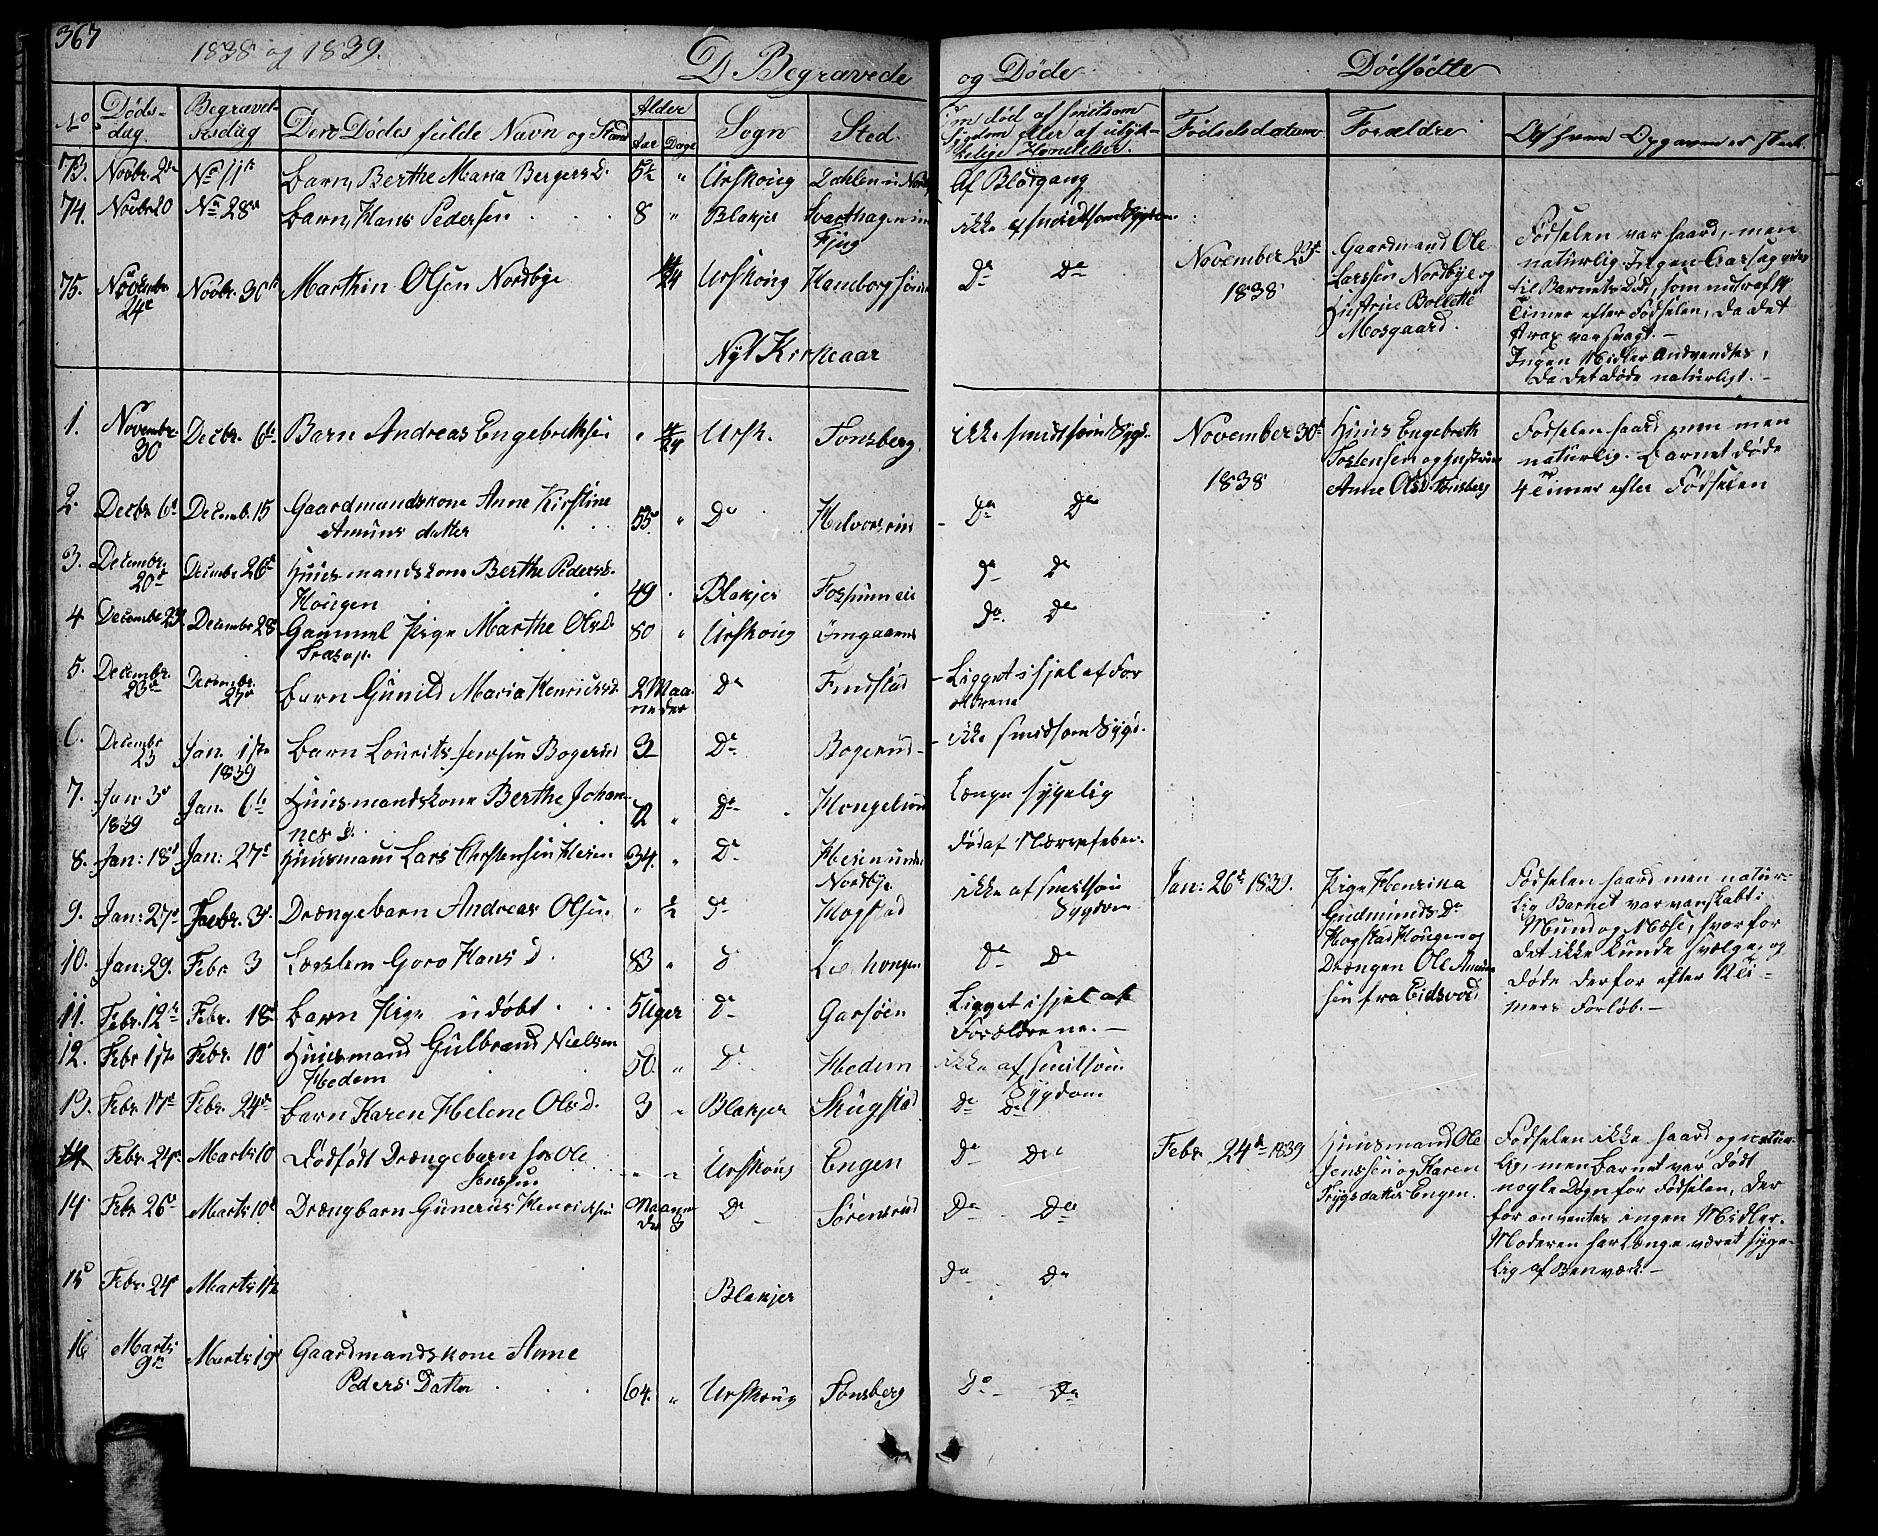 367
1838 og 1839.
D. Begravede og Døde
Dødfødte
No Døds-dag. Begravel-sesdag Den Dødes fulde Navn og Stand Alder Aar Dage Sogn Sted. Om død af smitsom Sygdom eller af ulyk-kelige Hændelser. Fødselsdatum Forældre
73. Novbr. 2den No 11te Barn, Berthe Maria Bergers D. 5½ " Urskoug Dahlen u Nord Af Blodgang
74. Novbr 20 No 28de Barn, Hans Pedersen 8 " Blakjer Svarthagen un Fjug ikke af smitsom Sygdom
75. Novembr 24de Novbr. 30te Marthin Olsen Nordbye 14/24 Urskoug Hamborg Do Do November 23de 1838
Gaardmand Ole
Larssen Nordbye og
Hustrue Bollette
Mosgaard.
Fødselen var haard, men
naturlig. Ingen Aarsag
til Barnets Død, som indtraf 14
Timer efter Fødselen, da det
strax var svagt. –
Ingen Midler Andvendtes,
da det døde naturligt. –
Nyt Kirkeaar
1. Novembr. 30 Decbr. 6te Barn Andreas Engebrethsen " 4/24 Ursk. Tonsberg ikke smidtsom Sygd. November 30te 1838
Huus Engebreth
Tostensen og Hustrue
Anne Olsd. Tonsberg
Fødselen haard men
naturlig. Barnet døde
4 Timer efter Fødselen
2. Decbr 6te Decemb. 15 Gaardmandskone Anne Kirstine
Amunsdatter 55 " Do Halvorsrud Do Do
3. Decembr. 20de Decembr 26de Huusmandskone Berthe Pedersd.
Hougen 49 . Blakjer Fossum eie Do Do
4 Decembr 23de Decembr 28 Gammel Pige Marthe Olsd. 80 " Urskoug Do Do
5. Decembr. 23de Decembr. 27de Barn Gunild Maria Henriksd. 2 Maa-neder Do Findstad Ligget ihjel af For
ældrene
6. Decembr 23 Jan. 1ste 1839 Barn Lourits Jensen Bogerud 3 Do Bogerud – ikke smidsom Sygd.
7. Jan 3de 1839 Jan. 6te Huusmandskone Berthe Johan-
nesd. 72 " Do Hongslund Længe sygelig
8. Jan: 18de Jan: 27de Huusmand Lars Christensen Hesen 34. " Do Hesen under
Nordbye død af Nervefeber.
9. Jan: 27de Febr. 3de Drængebarn Andreas Olsen. " ½ Do Hogstad ikke af smitsom
Sygdom Jan: 26de 1839.
Pige Henrina
Gudmundsdr
Hogstad Hougen og
Drængen Ole Amund
sen fra Eidsvold
Fødselen haard men natur-
lig Barnet var vanskabt i
Mund og Næse, hvorfor
det ikke kunde svælge, og
døde derfor efter 12 Ti-
mers Forløb. –
10. Jan: 29. Febr 3 Lægslem Goro Hans d. 83 " Do Do Do
11. Febr. 12te Febr. 18de Barn Pige udøbt 5 Uger Do Garsøen Ligget ihjel af
Forældrene. –
12. Febr 1ste Febr. 10de Huusmand Gulbrand Nielsen
Hedem 50. " Do Hedem ikke af smitsom
Sygdom
13. Febr. 17de Febr. 24de Barn Karen Helene Olsd. 3 " Blakjer Skugstad Do Do
14 Febr. 24de Marts 10 Dødfødt Drængebarn for Ole
Jenssen " " Urskoug Engen Do Do Febr 24de 1839
Huusmand Ole
Jenssen og Karen
Trygsdatter Engen.
Fødselen ikke haard og natur-
lig, men Barnet var dødt
nogle Døgn for Fødselen, der
for anventes ingen Midler.
Moderen har længe været syge-
lig af Benværk. –
14 Febr 26de Marts 10de Drængbarn Gunerus Henriksen Maane-der 3 Do Sørensrud Do Do
15 Febr. 24de Marts 11te Blakjer Do Do
16 Marts 9de Marts 19de Gaardmandskone Anne
Peders Datter 64. " Urskoug Tonsberg Do Do